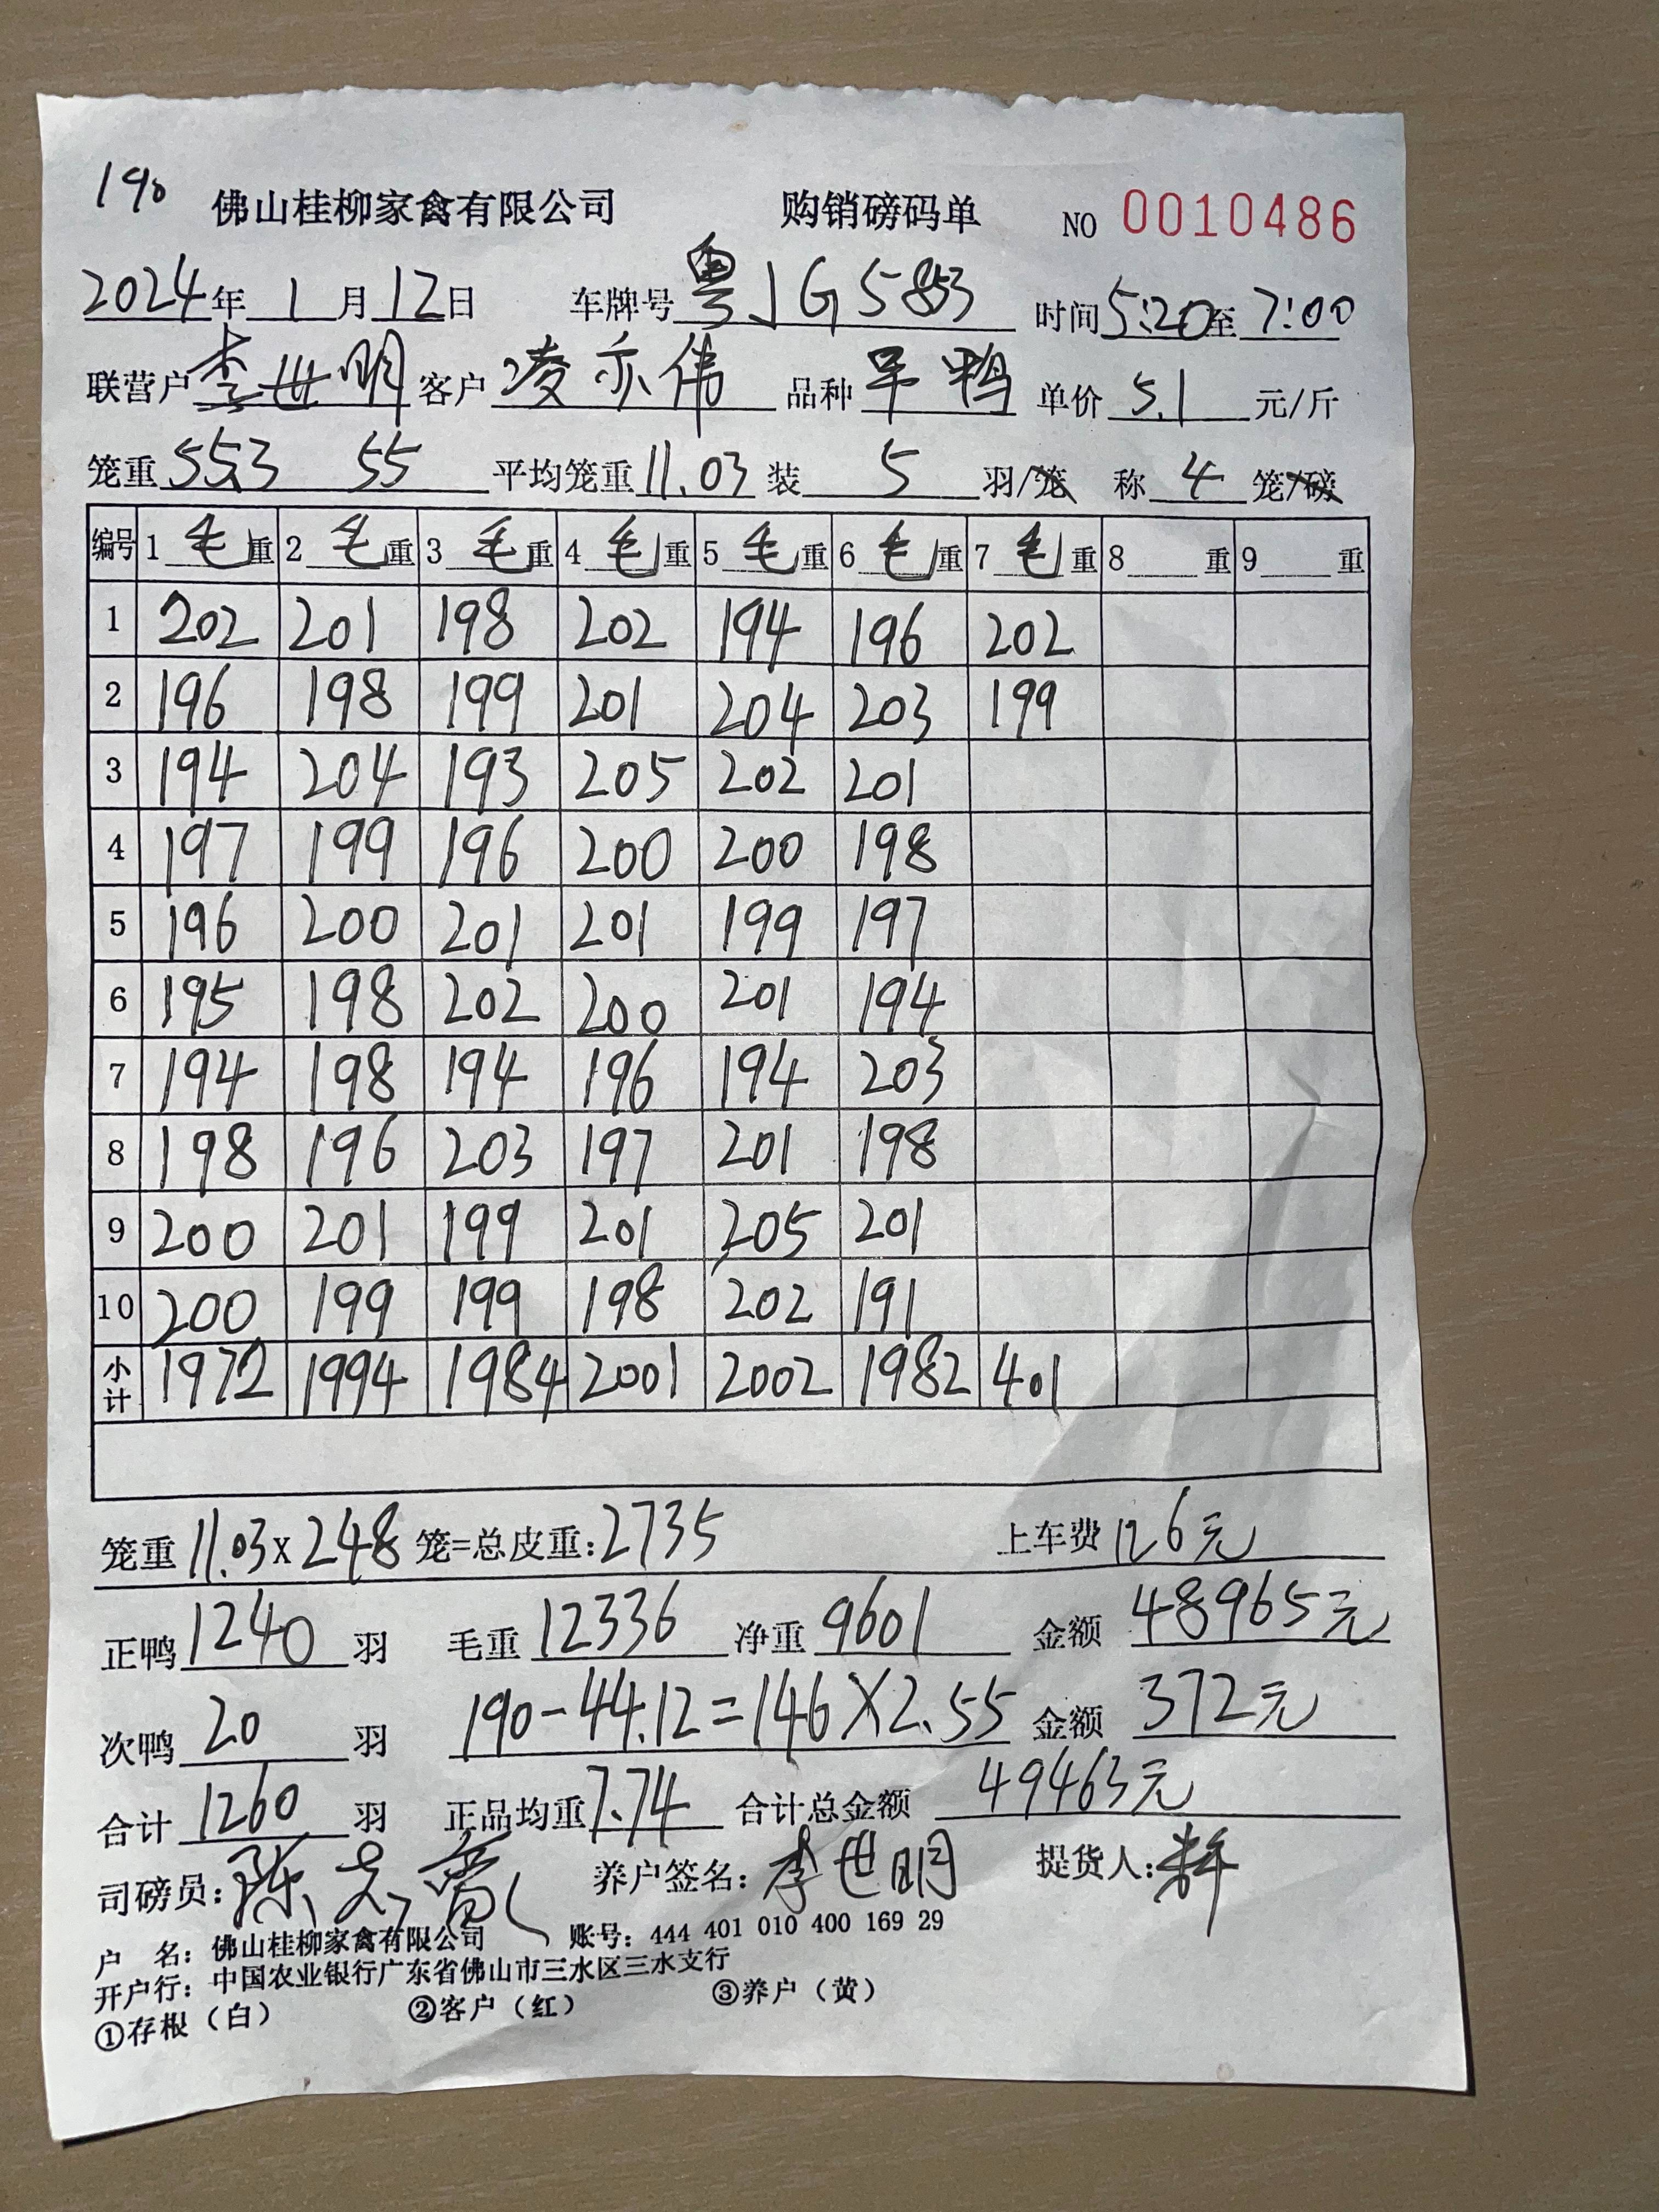 190 佛山桂柳家禽有限公司 购销磅码单 NO 0010486
2024年 1月12日 车牌号 粤JG5853 时间5:20至 7:00
联营户 李世明 客户 凌亦伟 品种 早鸭 单价 5.1 元/斤
笼重 553 55 平均笼重 11.03 装 5 羽/笼 称 4 笼/磅
编号 1 毛 重 2 毛 重 3 毛 重 4 毛 重 5 毛 重 6 毛 重 7 毛 重 8 重 9 重
1 202 201 198 202 194 196 202
2 196 198 199 201 204 203 199
3 194 204 193 205 202 201
4 197 199 196 200 200 198
5 196 200 201 201 199 197
6 195 198 202 200 201 194
7 194 198 194 196 194 203
8 198 196 203 197 201 198
9 200 201 199 201 205 201
10 200 199 199 198 202 191
小计 1972 1994 1984 2001 2002 1982 401
笼重 11.03×248 笼=总皮重:2735 上车费 126元
正鸭 1240 羽 毛重 12336 净重 9601 金额 48965元
次鸭 20 羽 190-44.12=146×2.55 金额 372元
合计 1260 羽 正品均重 7.74 合计总金额 49463元
司磅员:陈 养户签名:李世明 提货人:
户 名:佛山桂柳家禽有限公司 账号:444 401 010 400 169 29
开户行:中国农业银行广东省佛山市三水区三水支行
①存根(白) ②客户(红) ③养户(黄)